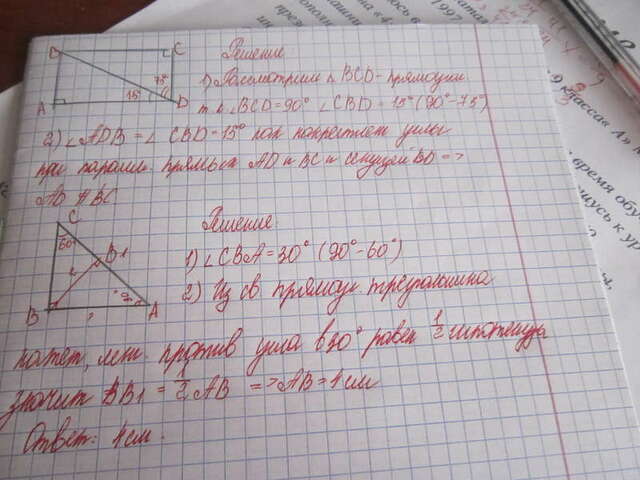 B C
Решение
1) Рассмотрим Δ BCD - прямоуг.
75°
A 15° D
т.к ∠BCD = 90° ∠CBD = 15° (90°-75°)
2) ∠ADB = ∠CBD = 15° как накрестлеж углы
при паралл. прямых AD и BC и секущей BD =>
AD ∦ BC
C
60°
B1
B ? A
Решение
1) ∠CBA = 30° (90°-60°)
2) Из св прямоуг. треугольника
катет, леж. против угла в 30° равен 1/2 гипотенузы
значит BB1 = 1/2 AB => AB = 4 см
Ответ: 4 см.
1997
9 класса «А»
время обу